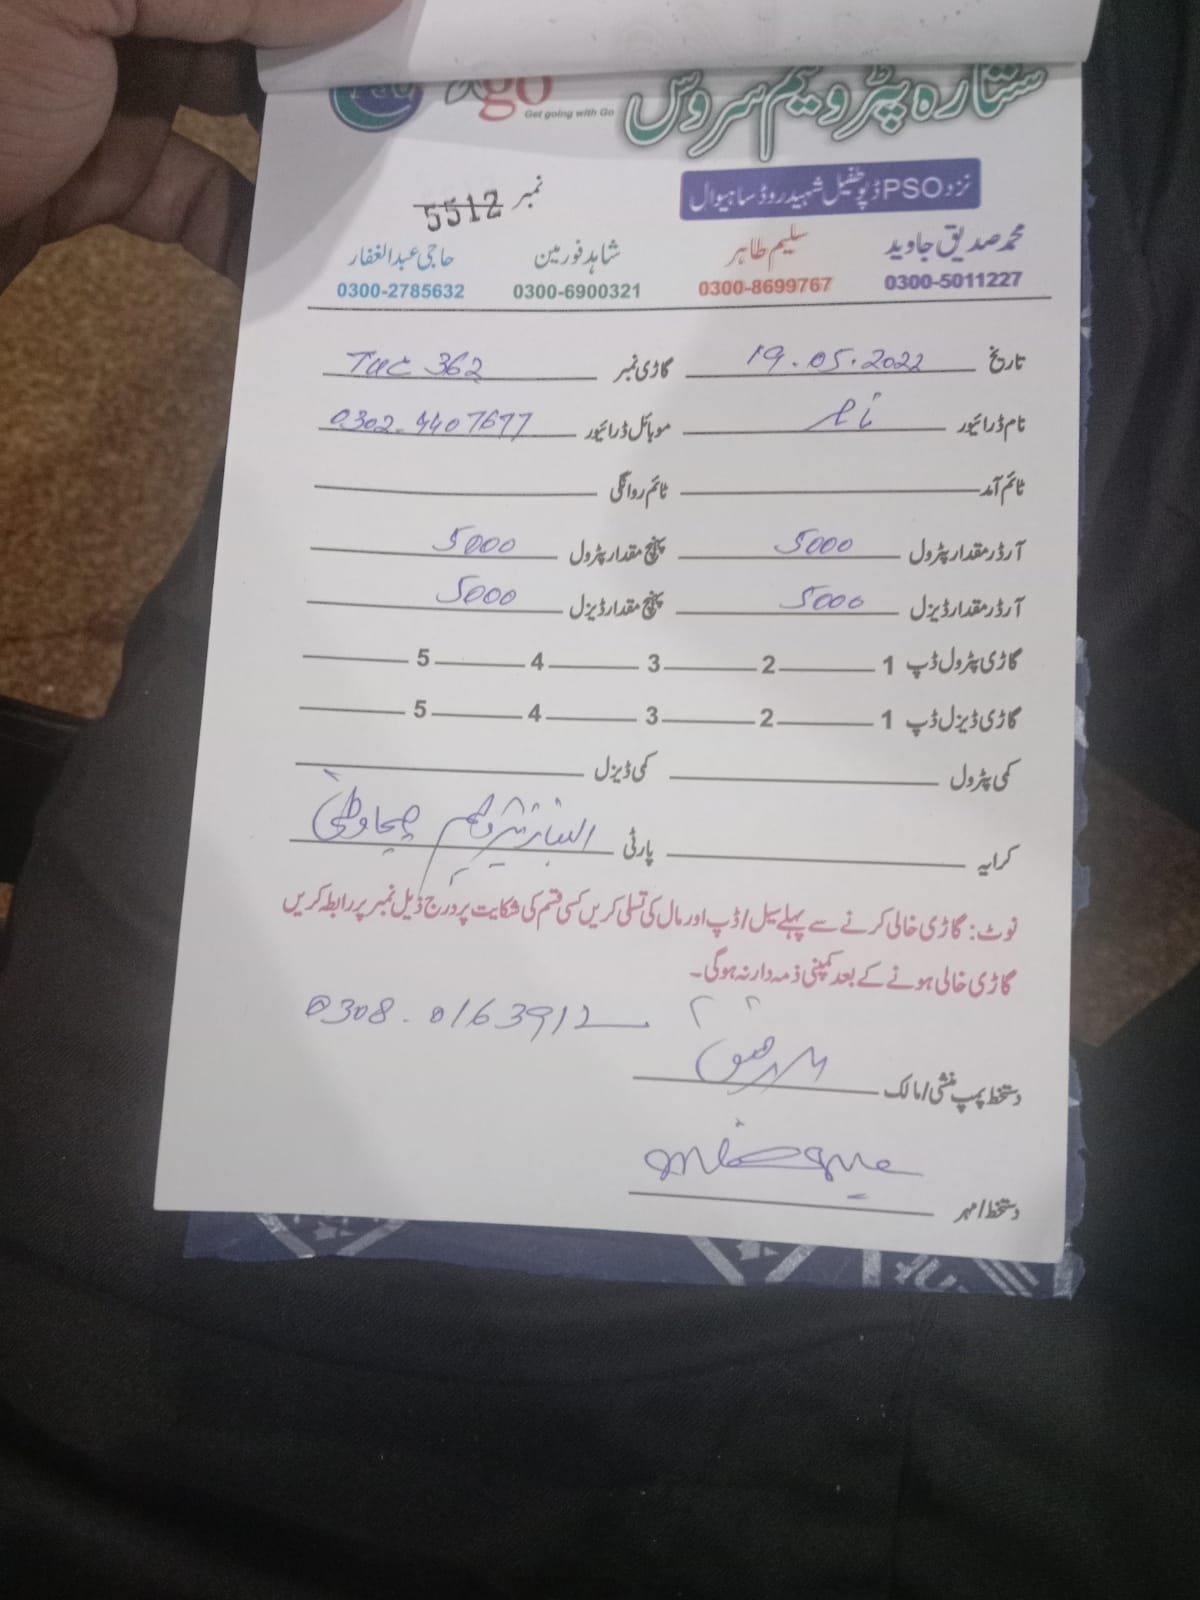 go
Get going with Go
ستارہ پٹرولیم سروس
نزد PSO ڈپو طفیل شہید روڈ ساہیوال
نمبر 5512
محمد صدیق جاوید سلیم طاہر شاہد فورمین حاجی عبدالغفار
0300-5011227 0300-8699767 0300-6900321 0300-2785632
تاریخ 19.05.2022 گاڑی نمبر 362
نام ڈرائیور موبائل ڈرائیور 0302-4407677
ٹائم آمد ٹائم روانگی
آرڈر مقدار پٹرول 5000 پہنچ مقدار پٹرول 5000
آرڈر مقدار ڈیزل 5000 پہنچ مقدار ڈیزل 5000
گاڑی پٹرول ڈپ 1 2 3 4 5
گاڑی ڈیزل ڈپ 1 2 3 4 5
کمی پٹرول کمی ڈیزل
کرایہ پارٹی پٹرولیم چیچاوطنی
نوٹ: گاڑی خالی کرنے سے پہلے سیل/ڈپ اور مال کی تسلی کریں کسی قسم کی شکایت پر درج ذیل نمبر پر رابطہ کریں
گاڑی خالی ہونے کے بعد کمپنی ذمہ دار نہ ہوگی۔
0308-0163912
دستخط پمپ منشی/مالک
دستخط/مہر